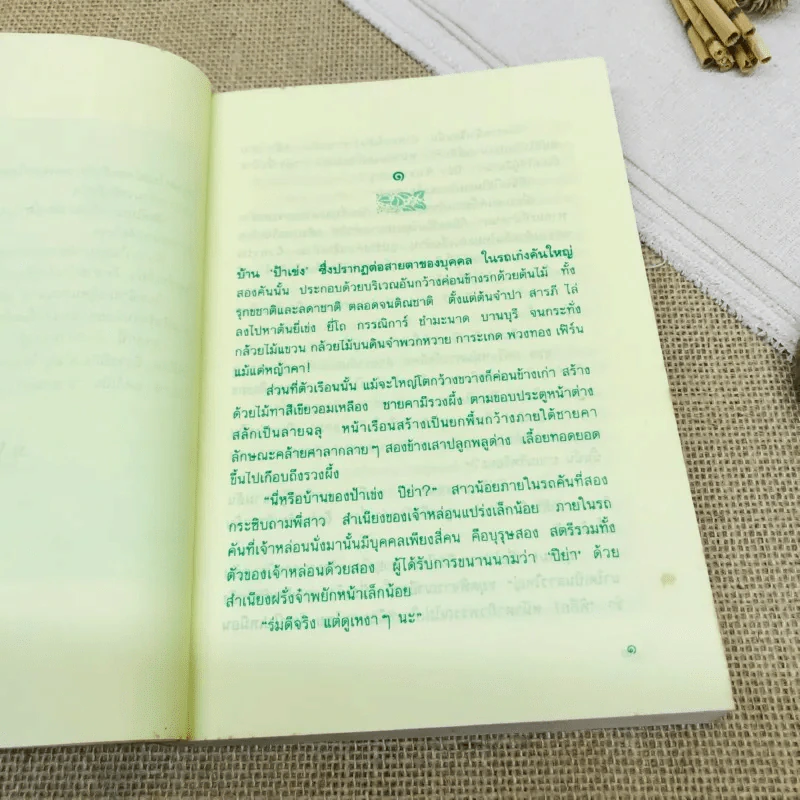 ๑
บ้าน 'ป้าเข่ง' ซึ่งปรากฏต่อสายตาของบุคคล ในรถเก๋งคันใหญ่
สองคันนั้น ประกอบด้วยบริเวณอันกว้างค่อนข้างรกด้วยต้นไม้ ทั้ง
รุกขชาติและลดาชาติ ตลอดจนติณชาติ ตั้งแต่ต้นจำปา สารภี ไล่
ลงไปหาต้นยี่เข่ง ยี่โถ กรรณิการ์ ชำมะนาด บานบุรี จนกระทั่ง
กล้วยไม้แขวน กล้วยไม้บนดินจำพวกหวาย การะเกด พวงทอง เฟิร์น
แม้แต่หญ้าคา!
ส่วนที่ตัวเรือนนั้น แม้จะใหญ่โตกว้างขวางก็ค่อนข้างเก่า สร้าง
ด้วยไม้ทาสีเขียวอมเหลือง ชายคามีรวงผึ้ง ตามขอบประตูหน้าต่าง
สลักเป็นลายฉลุ หน้าเรือนสร้างเป็นยกพื้นกว้างภายใต้ชายคา
ลักษณะคล้ายศาลากลายๆ สองข้างเสาปลูกพลูด่าง เลื้อยทอดยอด
ขึ้นไปเกือบถึงรวงผึ้ง
"นี่หรือบ้านของป้าเข่ง ปีย่า?" สาวน้อยภายในรถคันที่สอง
กระซิบถามพี่สาว สำเนียงของเจ้าหล่อนแปร่งเล็กน้อย ภายในรถ
คันที่เจ้าหล่อนนั่งมานั้นมีบุคคลเพียงสี่คน คือบุรุษสอง สตรีรวมทั้ง
ตัวของเจ้าหล่อนด้วยสอง ผู้ได้รับการขนานนามว่า 'ปีย่า' ด้วย
สำเนียงฝรั่งจ๋าพยักหน้าเล็กน้อย
"ร่มดีจริง แต่ดูเหงาๆ นะ"
๑